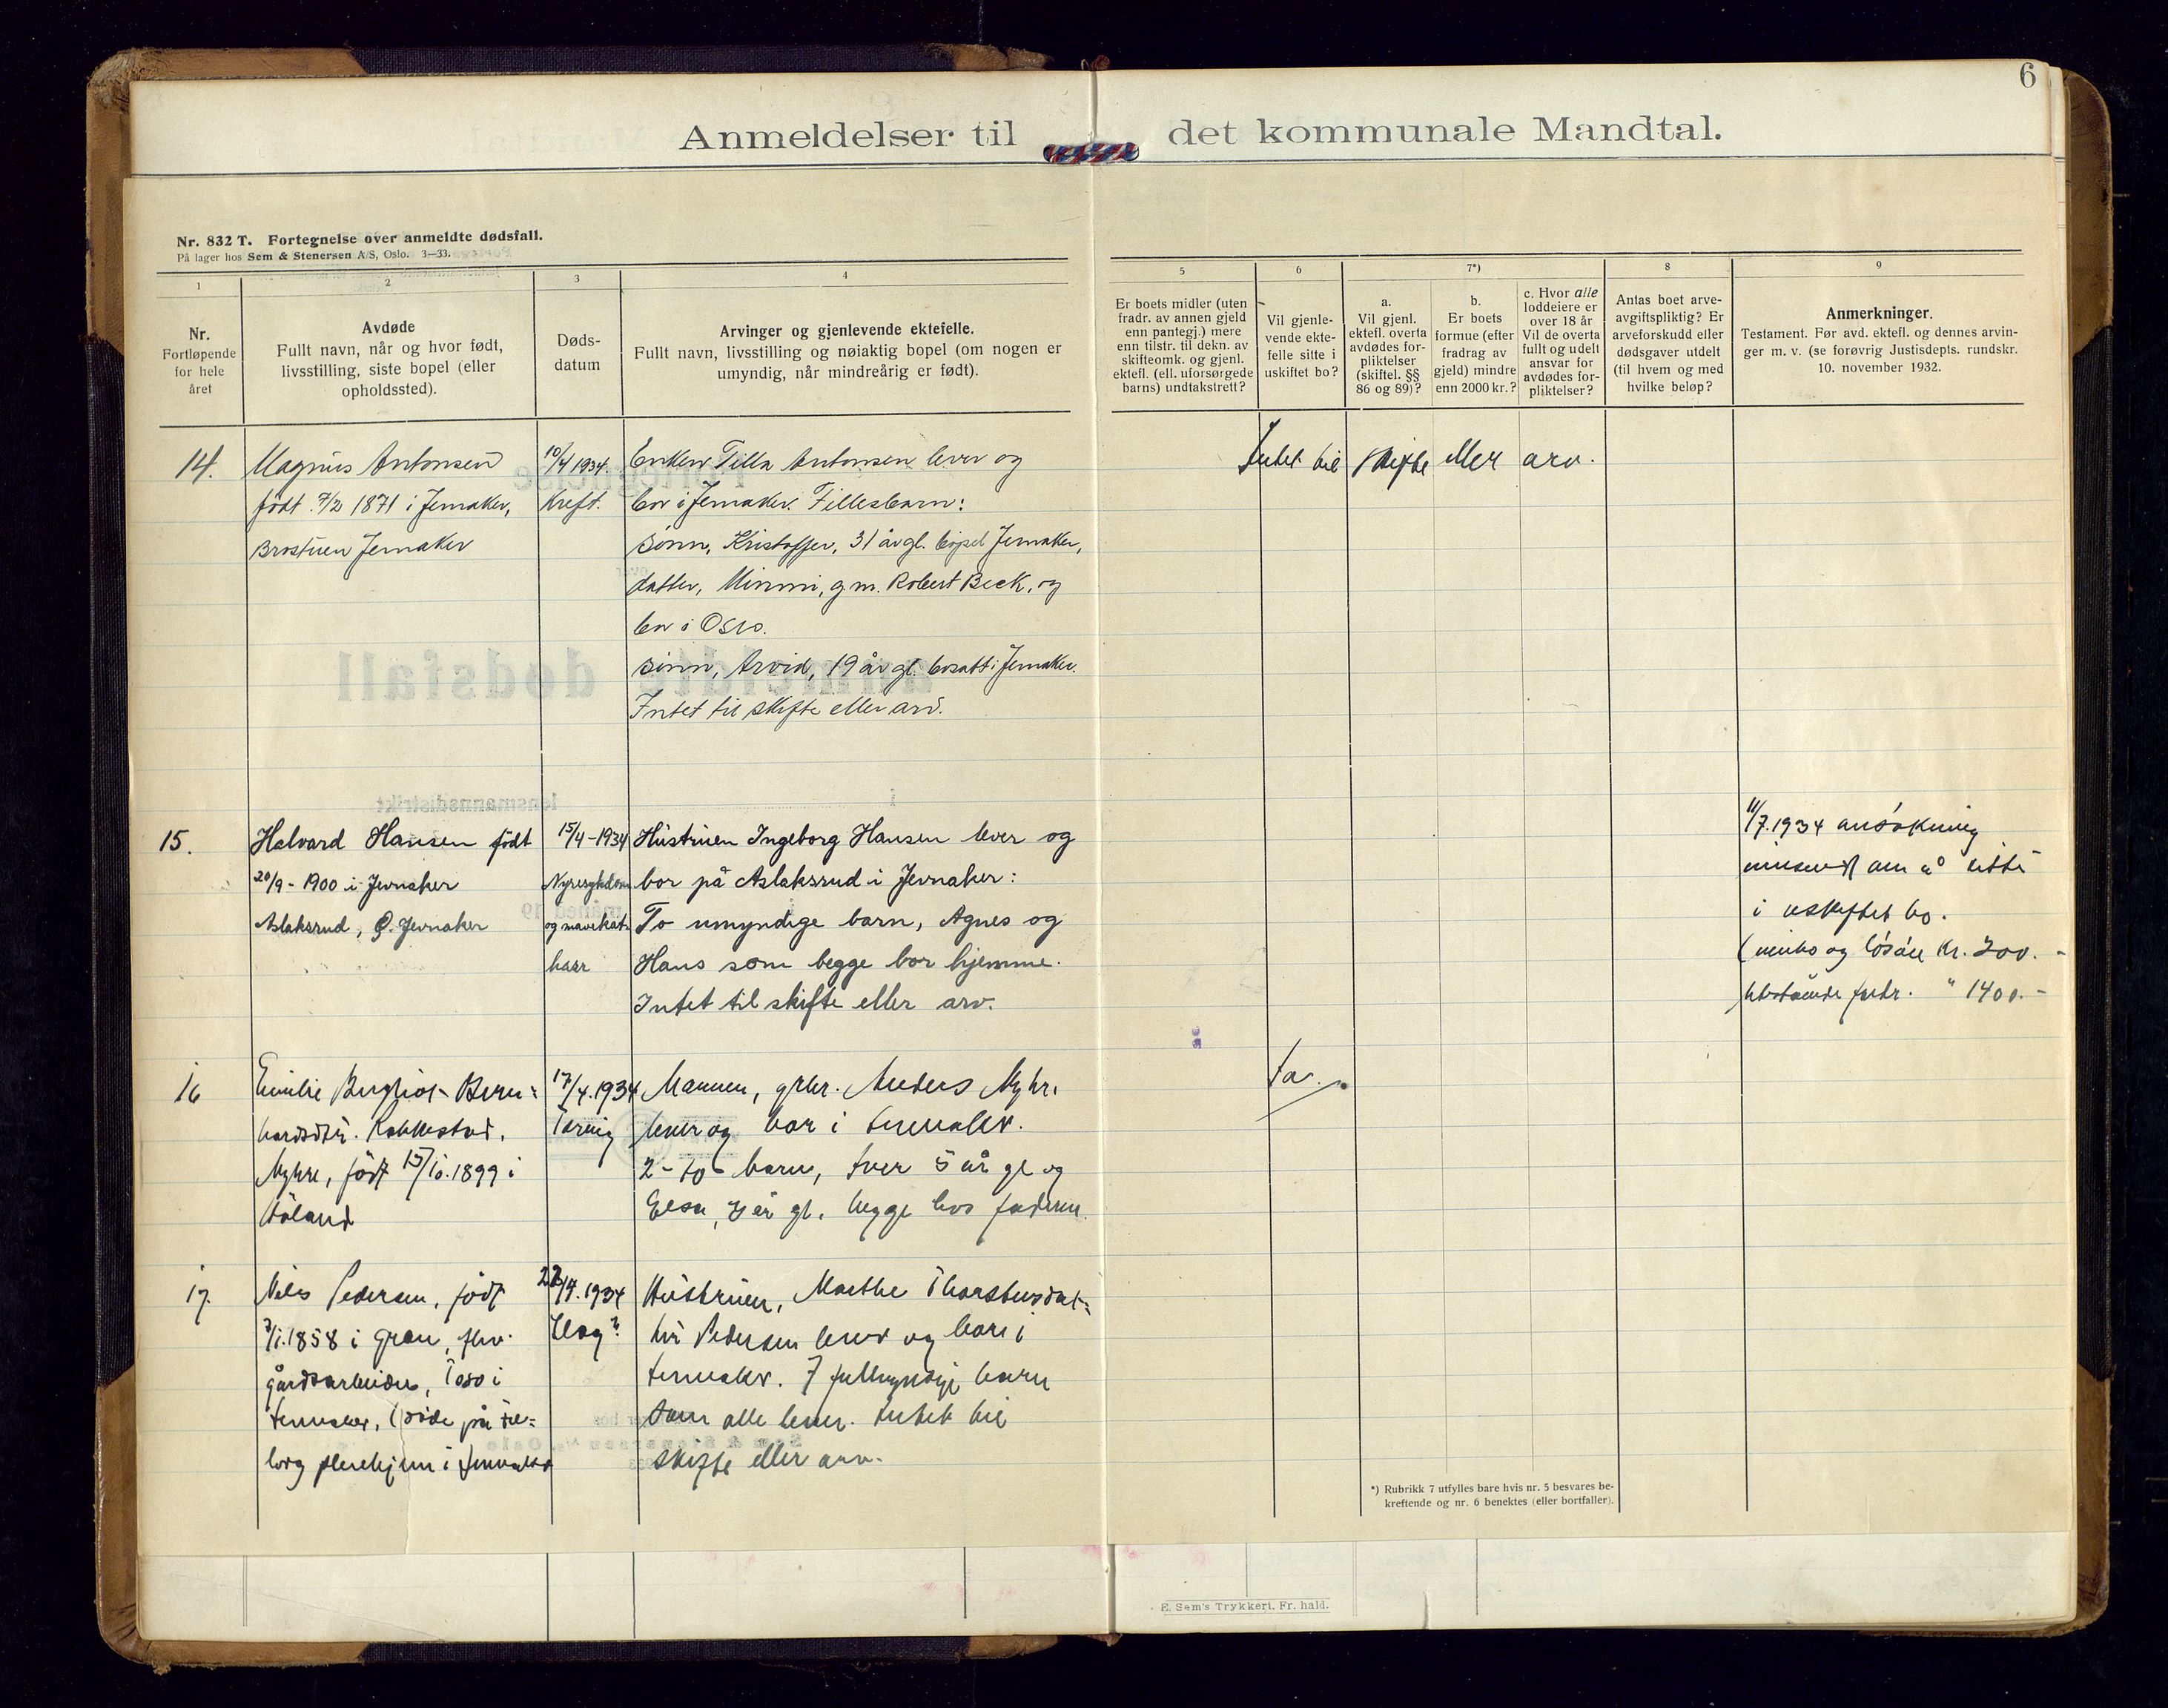 6
Anmeldelser til det kommunale Mandtal.
Nr. 832 T. Fortegnelse over anmeldte dødsfall.
På lager hos Sem & Stenersen A/S, Oslo. 3—33.
1
Nr.
Fortløpende
for hele
året
2
Avdøde
Fullt navn, når og hvor født,
livsstilling, siste bopel (eller
opholdssted).
3
Døds-
datum
4
Arvinger og gjenlevende ektefelle.
Fullt navn, livsstilling og nøiaktig bopel (om nogen er
umyndig, når mindreårig er født).
5
Er boets midler (uten
fradr. av annen gjeld
enn pantegj.) mere
enn tilstr. til dekn. av
skifteomk. og gjenl.
ektefl. (ell. uforsørgede
barns) undtakstrett?
6
Vil gjenle-
vende ekte-
felle sitte i
uskiftet bo?
7*)
a.
Vil gjenl.
ektefl. overta
avdødes for-
pliktelser
(skiftel. §§
86 og 89)?
b.
Er boets
formue (efter
fradrag av
gjeld) mindre
enn 2000 kr.?
c. Hvor alle
loddeiere er
over 18 år
Vil de overta
fullt og udelt
ansvar for
avdødes for-
pliktelser?
8
Antas boet arve-
avgiftspliktig? Er
arveforskudd eller
dødsgaver utdelt
(til hvem og med
hvilke beløp?
9
Anmerkninger.
Testament. Før avd. ektefl. og dennes arvin-
ger m. v. (se forøvrig Justisdepts. rundskr.
10. november 1932.
14.
Magnus Antonsen
født 7/2 1871 i Jevnaker,
Brostuen Jevnaker
10/4 1934.
Kreft.
Enken Tilla Antonsen lever og
bor i Jevnaker. Fellesbarn:
sønn, Kristoffer, 31 år gl. bopel Jevnaker,
datter, Mimmi, g.m. Robert Beck, og
bor i Oslo.
sønn, Arvid, 19 år gl. bosatt i Jevnaker.
Intet til skifte eller arv.
Intet til skifte eller arv.
15.
Halvard Hansen født
20/9 - 1900 i Jevnaker
Aslaksrud, Ø. Jevnaker
15/4 - 1934
Nyresykdom
og mavekat-
harr
Hustruen Ingeborg Hansen lever og
bor på Aslaksrud i Jevnaker:
To umyndige barn, Agnes og
Hans som begge bor hjemme.
Intet til skifte eller arv.
11/7.1934 ansøkning
om å sitte
i uskiftet bo.
og løsøre kr. 200.-
fordr. " 1400.-
16
Emilie Bergliot Bern-
hardsdtr.
Myhre, født 15/10.1899 i
Høland
17/4.1934
Tæring
Mannen, grbr. Anders Myhre
lever og bor i Jevnaker.
2 - to barn, Iver 5 år gl og
Elsa, 3 år gl. begge hos faderen.
Ja.
17.
Nils Pedersen, født
7/1.1858 i Gran, fhv.
gårdsarbeider, Toso i
Jevnaker, døde på Fre-
borg pleiehjem i Jevnaker
22/4.1934
Slag?
Hustruen, Marthe Thorstensdat-
ter Pedersen lever og bor i
Jevnaker. 7 fullmyndige barn
som alle lever. Intet til
skifte eller arv.
*) Rubrikk 7 utfylles bare hvis nr. 5 besvares be-
kreftende og nr. 6 benektes (eller bortfaller).
E. Sem's Trykkeri. Fr. hald.